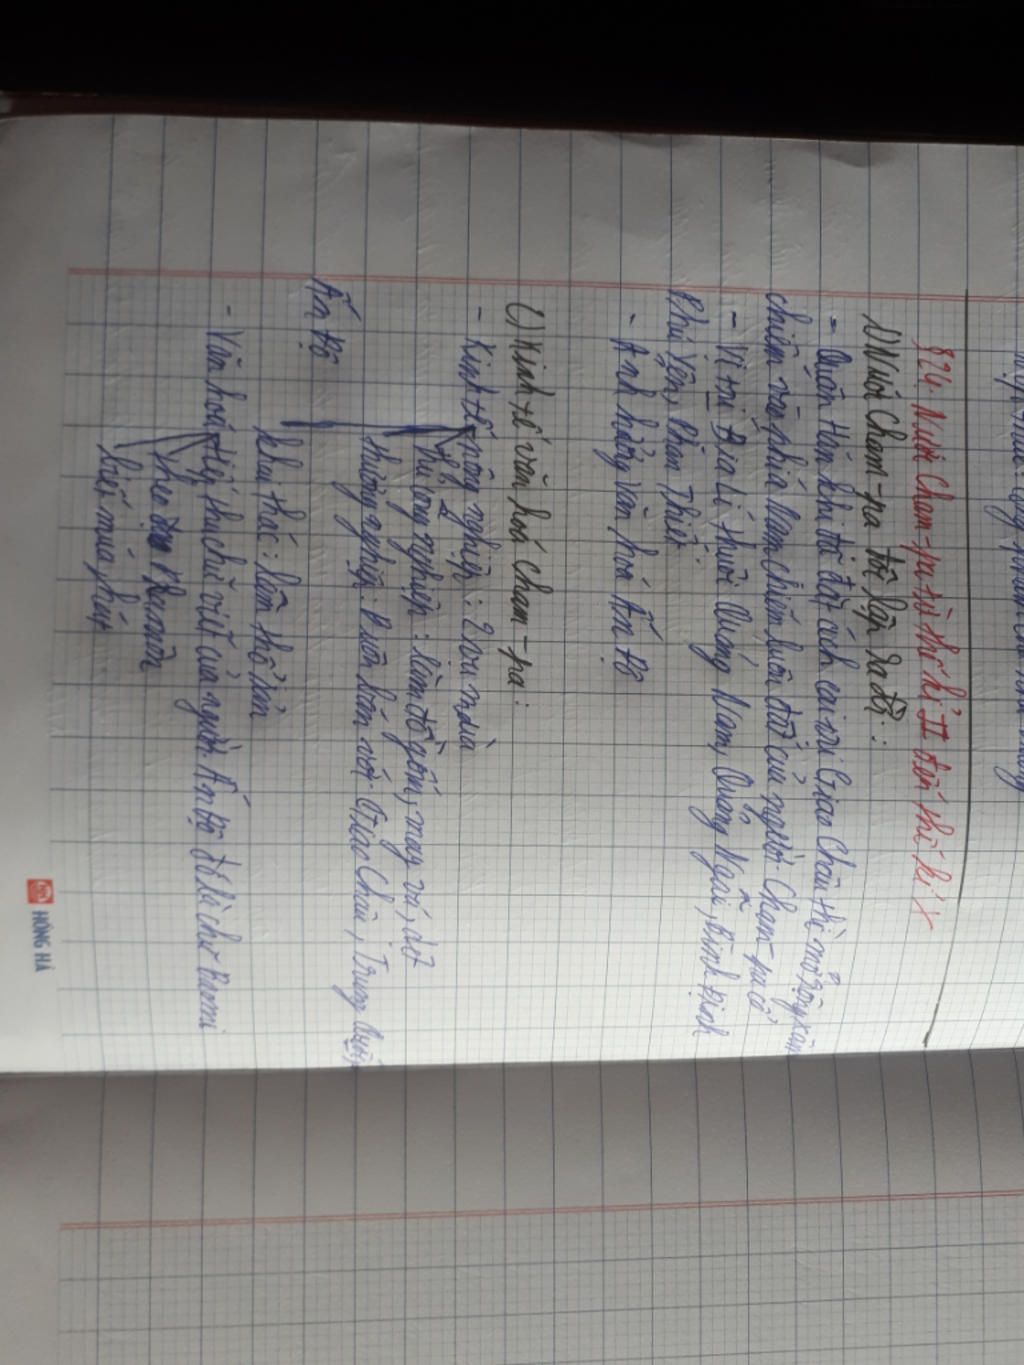 §24. Nước Cham-pa từ thế kỉ II đến thế kỉ X
1) Nước Cham-pa độc lập ra đời:
- Quân Hán khi đã đặt ách cai với Giao Châu thì mở rộng xâm
chiếm về phía Nam chiếm luôn đất của người Chăm-pa cổ
- Vị trí Địa lí thuộc Quảng Nam, Quảng Ngãi, Bình Định
Phú Yên, Phan Thiết
- Ảnh hưởng văn hoá Ấn Độ
2) Kinh tế văn hoá cham-pa:
- Kinh tế nông nghiệp: 2 vụ mùa
thủ công nghiệp: làm đồ gốm, may vá, dệt
thương nghiệp: Buôn bán với Giao Châu, Trung Quốc,
Ấn Độ
khai thác: lâm thổ sản
- Văn hoá tiếp thu chữ viết của người Ấn Độ đó là chữ
theo đạo
biết múa hát
HỒNG HÀ